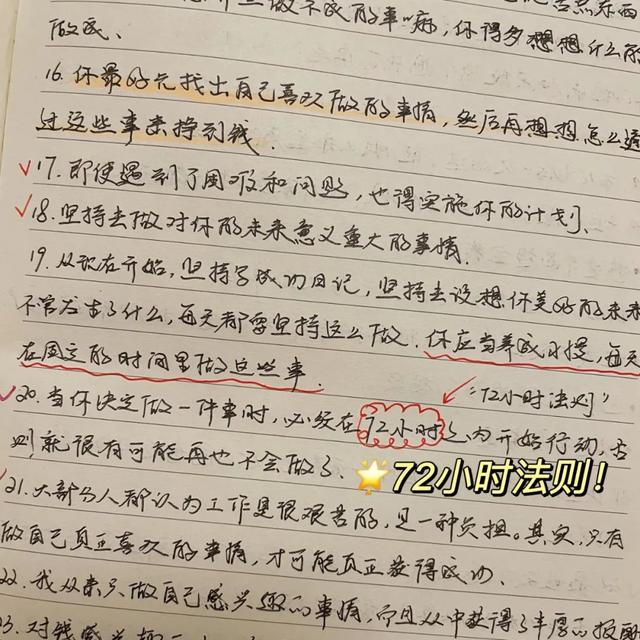 做不成的事"病,你得多想想什么
做成、
16.你最好先找出自己喜欢做的事情,然后再想想怎么通
过这些事来挣到钱.
✓17.即使遇到了困难和问题,也得实施你的计划、
✓18.坚持去做对你的未来意义重大的事情.
19.从现在开始,坚持写成功日记,坚持去设想你美好的未来
不管发生了什么,每天都要坚持这么做.你应当养成习惯,每天
在固定的时间里做这些事.
"72小时法则"
✓20.当你决定做一件事时,必须在72小时之内开始行动,否
则就很有可能再也不会做了、
🌟72小时法则!
21.大部分人都认为工作是很艰苦的,是一种负担。其实,只有
做自己真正喜欢的事情,才可能真正获得成功.
22.我从来只做自己感兴趣的事情,而且从中获得了丰厚的报酬
23.对钱感兴趣